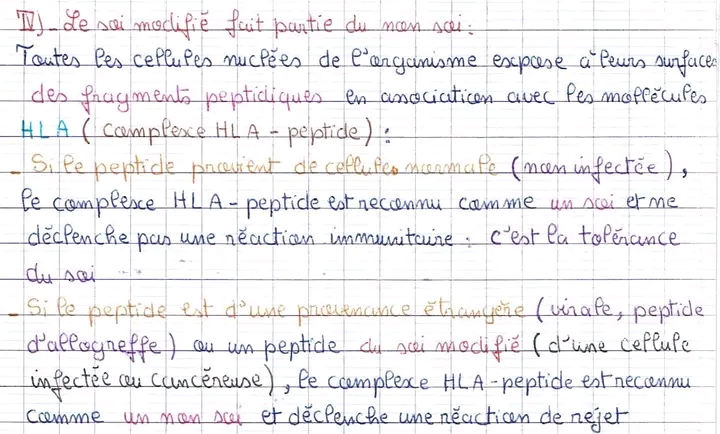 IV)_ Le soi modifié fait partie du non soi :
Toutes les cellules nuclées de l'organisme expose à leurs surfaces
des fragments peptidiques en association avec les mollécules
HLA ( complexe HLA - peptide ) :
_ Si le peptide provient de cellules normale (non infectée),
le complexe HLA - peptide est reconnu comme un soi et ne
déclenche pas une réaction immunitaire : c'est la tolérance
du soi
_ Si le peptide est d'une provenance étrangère (virale, peptide
d'allogreffe) ou un peptide du soi modifié (d'une cellule
infectée ou cancéreuse), le complexe HLA - peptide est reconnu
comme un non soi et déclenche une réaction de rejet